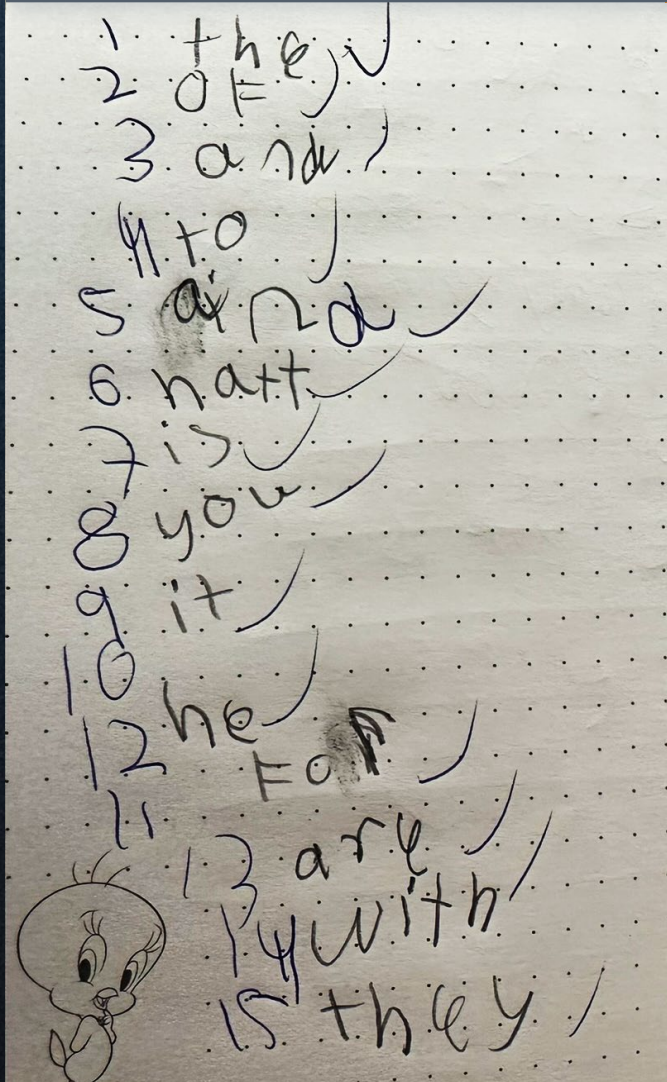 1 the
2 OF
3 and
4 to
5 and
6 hatt
7 is
8 you
9 it
10 he
12 For
11
13 are
14 with
15 they